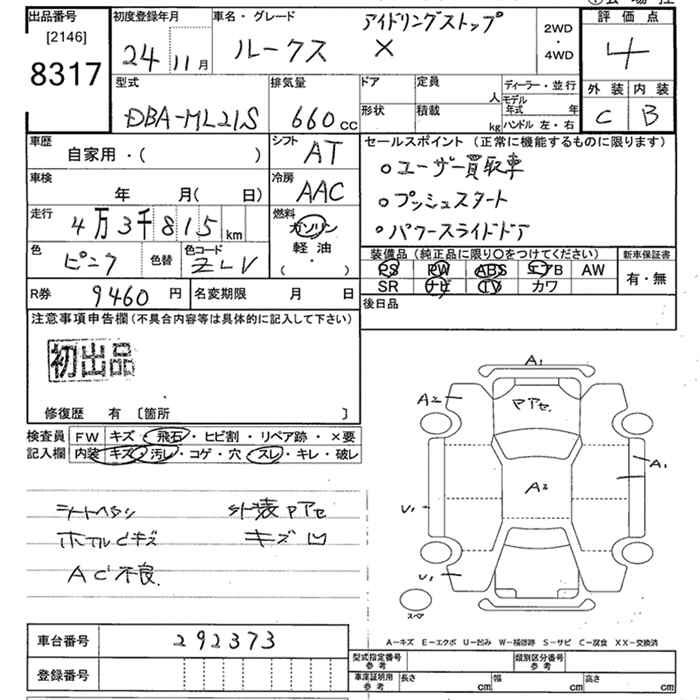 出品番号
[2146]
8317
初度登録年月
24 11月
車名・グレード
アイドリングストップ
ルークス X
2WD
・
4WD
評価点
4
外装 内装
C B
型式
DBA-ML21S
排気量
660cc
ドア 定員 人
形状 積載 kg
ディーラー・並行
モデル年式 年
ハンドル 左・右
車歴
自家用・( )
シフト
AT
車検
年 月( 日)
冷房
AAC
走行
4万3千815km
燃料
ガソリン
軽油
( ・ )
色
ピンク
色替
色コード
ZLV
R券
9460円
名変期限 月 日
セールスポイント (正常に機能するものに限ります)
○ユーザー買取車
・プッシュスタート
・パワースライドドア
装備品 (純正品に限り○をつけてください)
PS PW ABS エアB AW
SR ナビ TV カワ
新車保証書
有・無
後日品
注意事項申告欄 (不具合内容等は具体的に記入して下さい)
初出品
修復歴 有 〔箇所 〕
検査員記入欄
FW キズ・飛石・ヒビ割・リペア跡・×要
内装 キズ・汚レ・コゲ・穴・スレ・キレ・破レ
シートヘタリ 外装Pアセ
ホイルCキズ キズ凹
AC不良
A1
A2
Pアセ
A1
A2
U1
U1
スペア
A-キズ E-エクボ U-凹み W-補修跡 S-サビ C-腐食 XX-交換済
車台番号
292373
登録番号
型式指定番号
参考
類別区分番号
参考
車庫証明用
参考
長さ cm 幅 cm 高さ cm